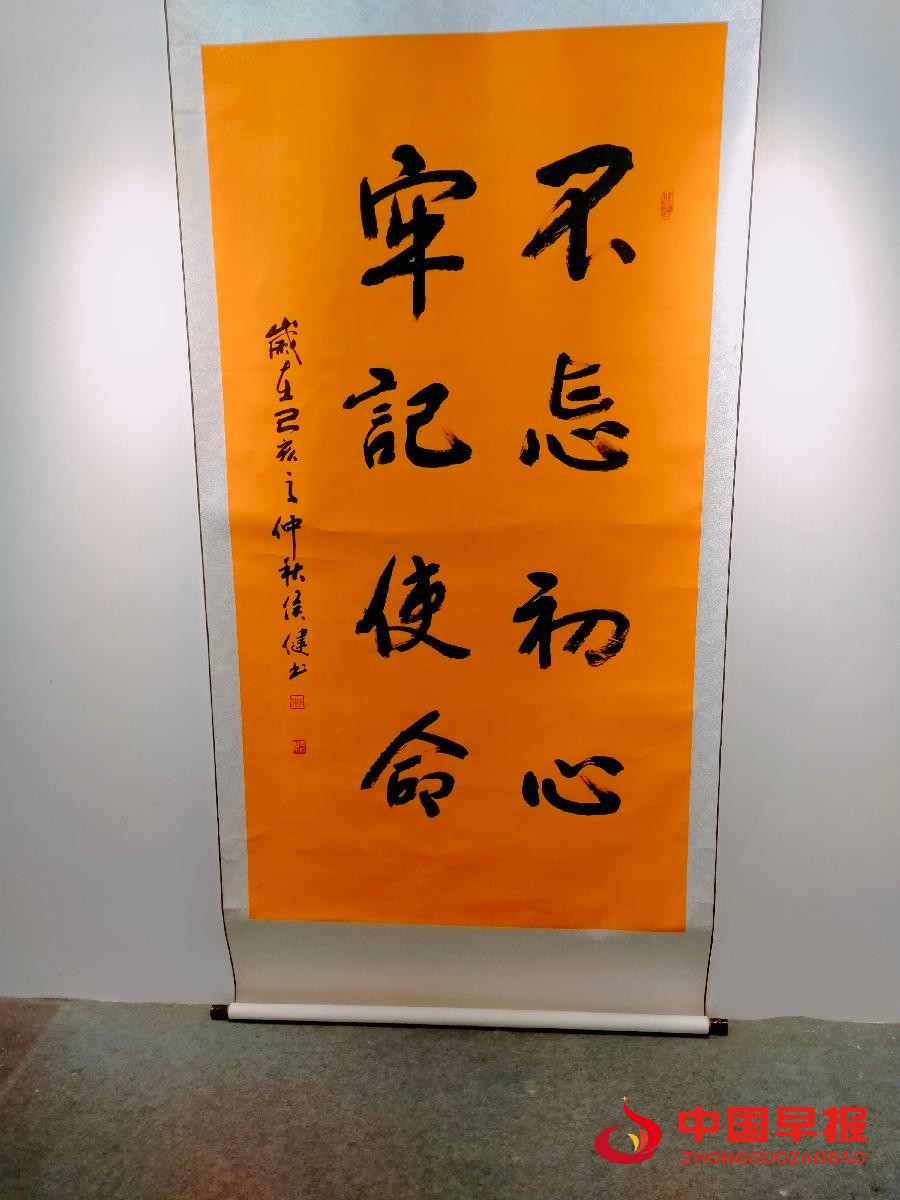 不忘初心
牢記使命
歲在己亥之仲秋侯健书
中国早报
ZHONGGUOZAOBAO